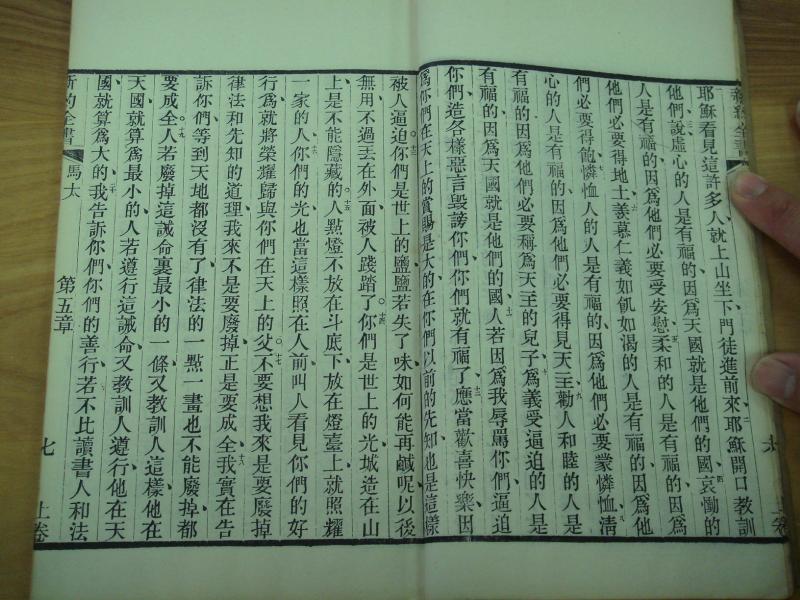 新約全書 六 上卷
耶穌看見這許多人、就上山坐下、門徒進前來、二耶穌開口教訓
他們說、三虛心的人是有福的、因爲天國就是他們的國、四哀慟的
人是有福的、因爲他們必要受安慰、五柔和的人是有福的、因爲
他們必要得地土、六羨慕仁義如飢如渴的人是有福的、因爲他
們必要得飽、七憐恤人的人是有福的、因爲他們必要蒙憐恤、八淸
心的人是有福的、因爲他們必要得見天主、九勸人和睦的人是
有福的、因爲他們必要稱爲天主的兒子、十爲義受逼迫的人是
有福的、因爲天國就是他們的國、十一人若因爲我辱罵你們、逼迫
你們、造各樣惡言毀謗你們、你們就有福了、十二應當歡喜快樂、因
爲你們在天上的賞賜是大的、在你們以前的先知也是這樣
被人逼迫、十三你們是世上的鹽、鹽若失了味、如何能再鹹呢、以後
無用、不過丟在外面、被人踐踏了、十四你們是世上的光、城造在山
上、是不能隱藏的、十五人點燈不放在斗底下、放在燈臺上、就照耀
一家的人、十六你們的光也當這樣照在人前、叫人看見你們的好
行爲、就將榮耀歸與你們在天上的父、十七不要想我來是要廢掉
律法和先知的道理、我來不是要廢掉、正是要成全、十八我實在告
訴你們、等到天地都沒有了、律法的一點一畫也不能廢掉、都
要成全、十九人若廢掉這誡命裏最小的一條、又教訓人這樣、他在
天國就算爲最小的、人若遵行這誡命、又教訓人遵行、他在天
國就算爲大的、二十我告訴你們、你們的善行若不比讀書人和法
新約全書 馬太 第五章 七 上卷